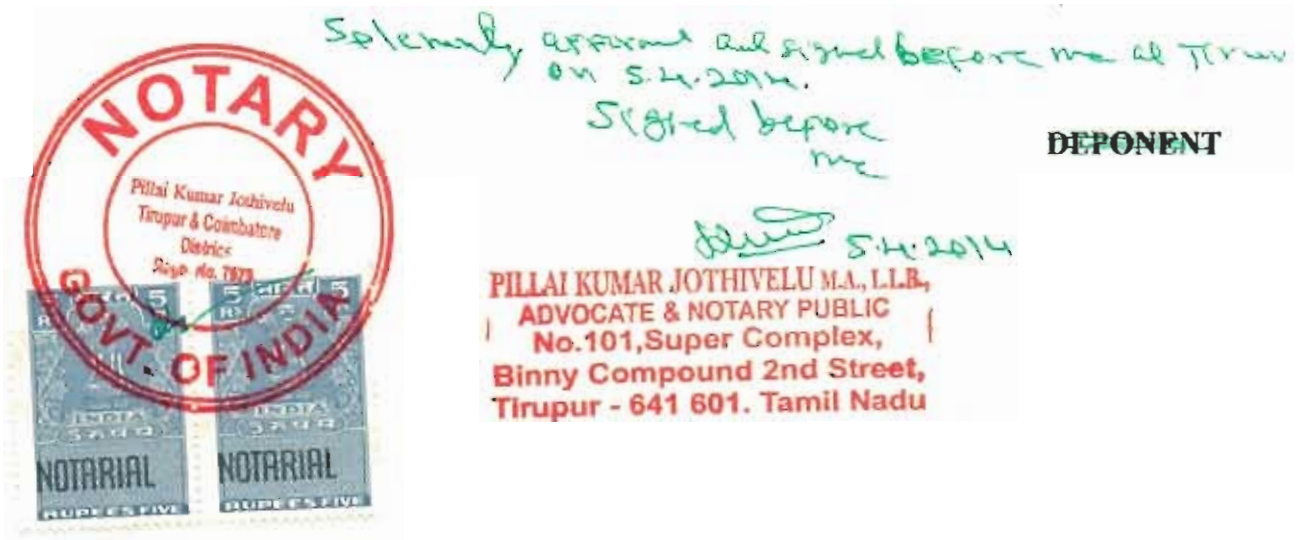 Solemnly affirmed and signed before me at
on 5.4.2014.
Signed before
me
DEPONENT
5.4.2014
NOTARY
Pillai Kumar Jothivelu
Tirupur & Coimbatore
District
No. 7979
GOVT. OF INDIA
PILLAI KUMAR JOTHIVELU M.A., L.L.B.,
ADVOCATE & NOTARY PUBLIC
No.101,Super Complex,
Binny Compound 2nd Street,
Tirupur - 641 601. Tamil Nadu
भारत 5
5 भारत 5
INDIA
INDIA
NOTARIAL
NOTARIAL
RUPEES FIVE
RUPEES FIVE